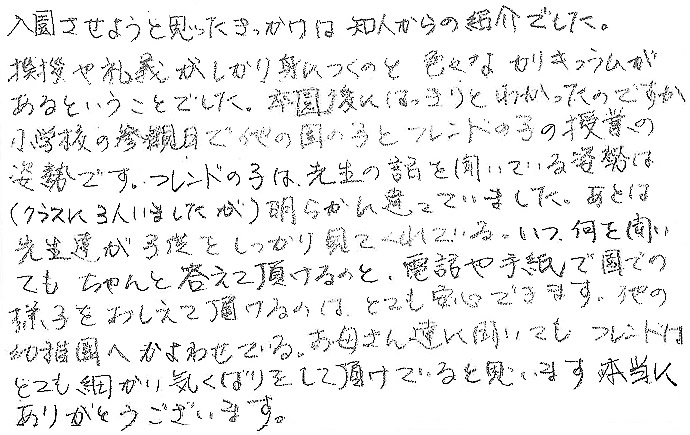 入園させようと思ったきっかけは 知人からの紹介でした。
挨拶や礼義がしかり身につくのと 色々な カリキュラムが
あるということでした。卒園後にはっきりとわかったのですが
小学校の参観日で他の園の子とフレンドの子の授業の
姿勢です。フレンドの子は、先生の話を聞いている姿勢は
(クラスに3人いましたが)明らかに違っていました。あとは
先生達が子供をしっかり見てくれている。いつ、何を聞い
ても ちゃんと答えて頂けるのと、電話や手紙で園での
様子をおしえて頂けるのは、とても安心できます。他の
幼稚園へかよわせている。お母さん達に聞いても フレンドは
とても細かい気くばりをして頂けていると思います 本当に
ありがとうございます。